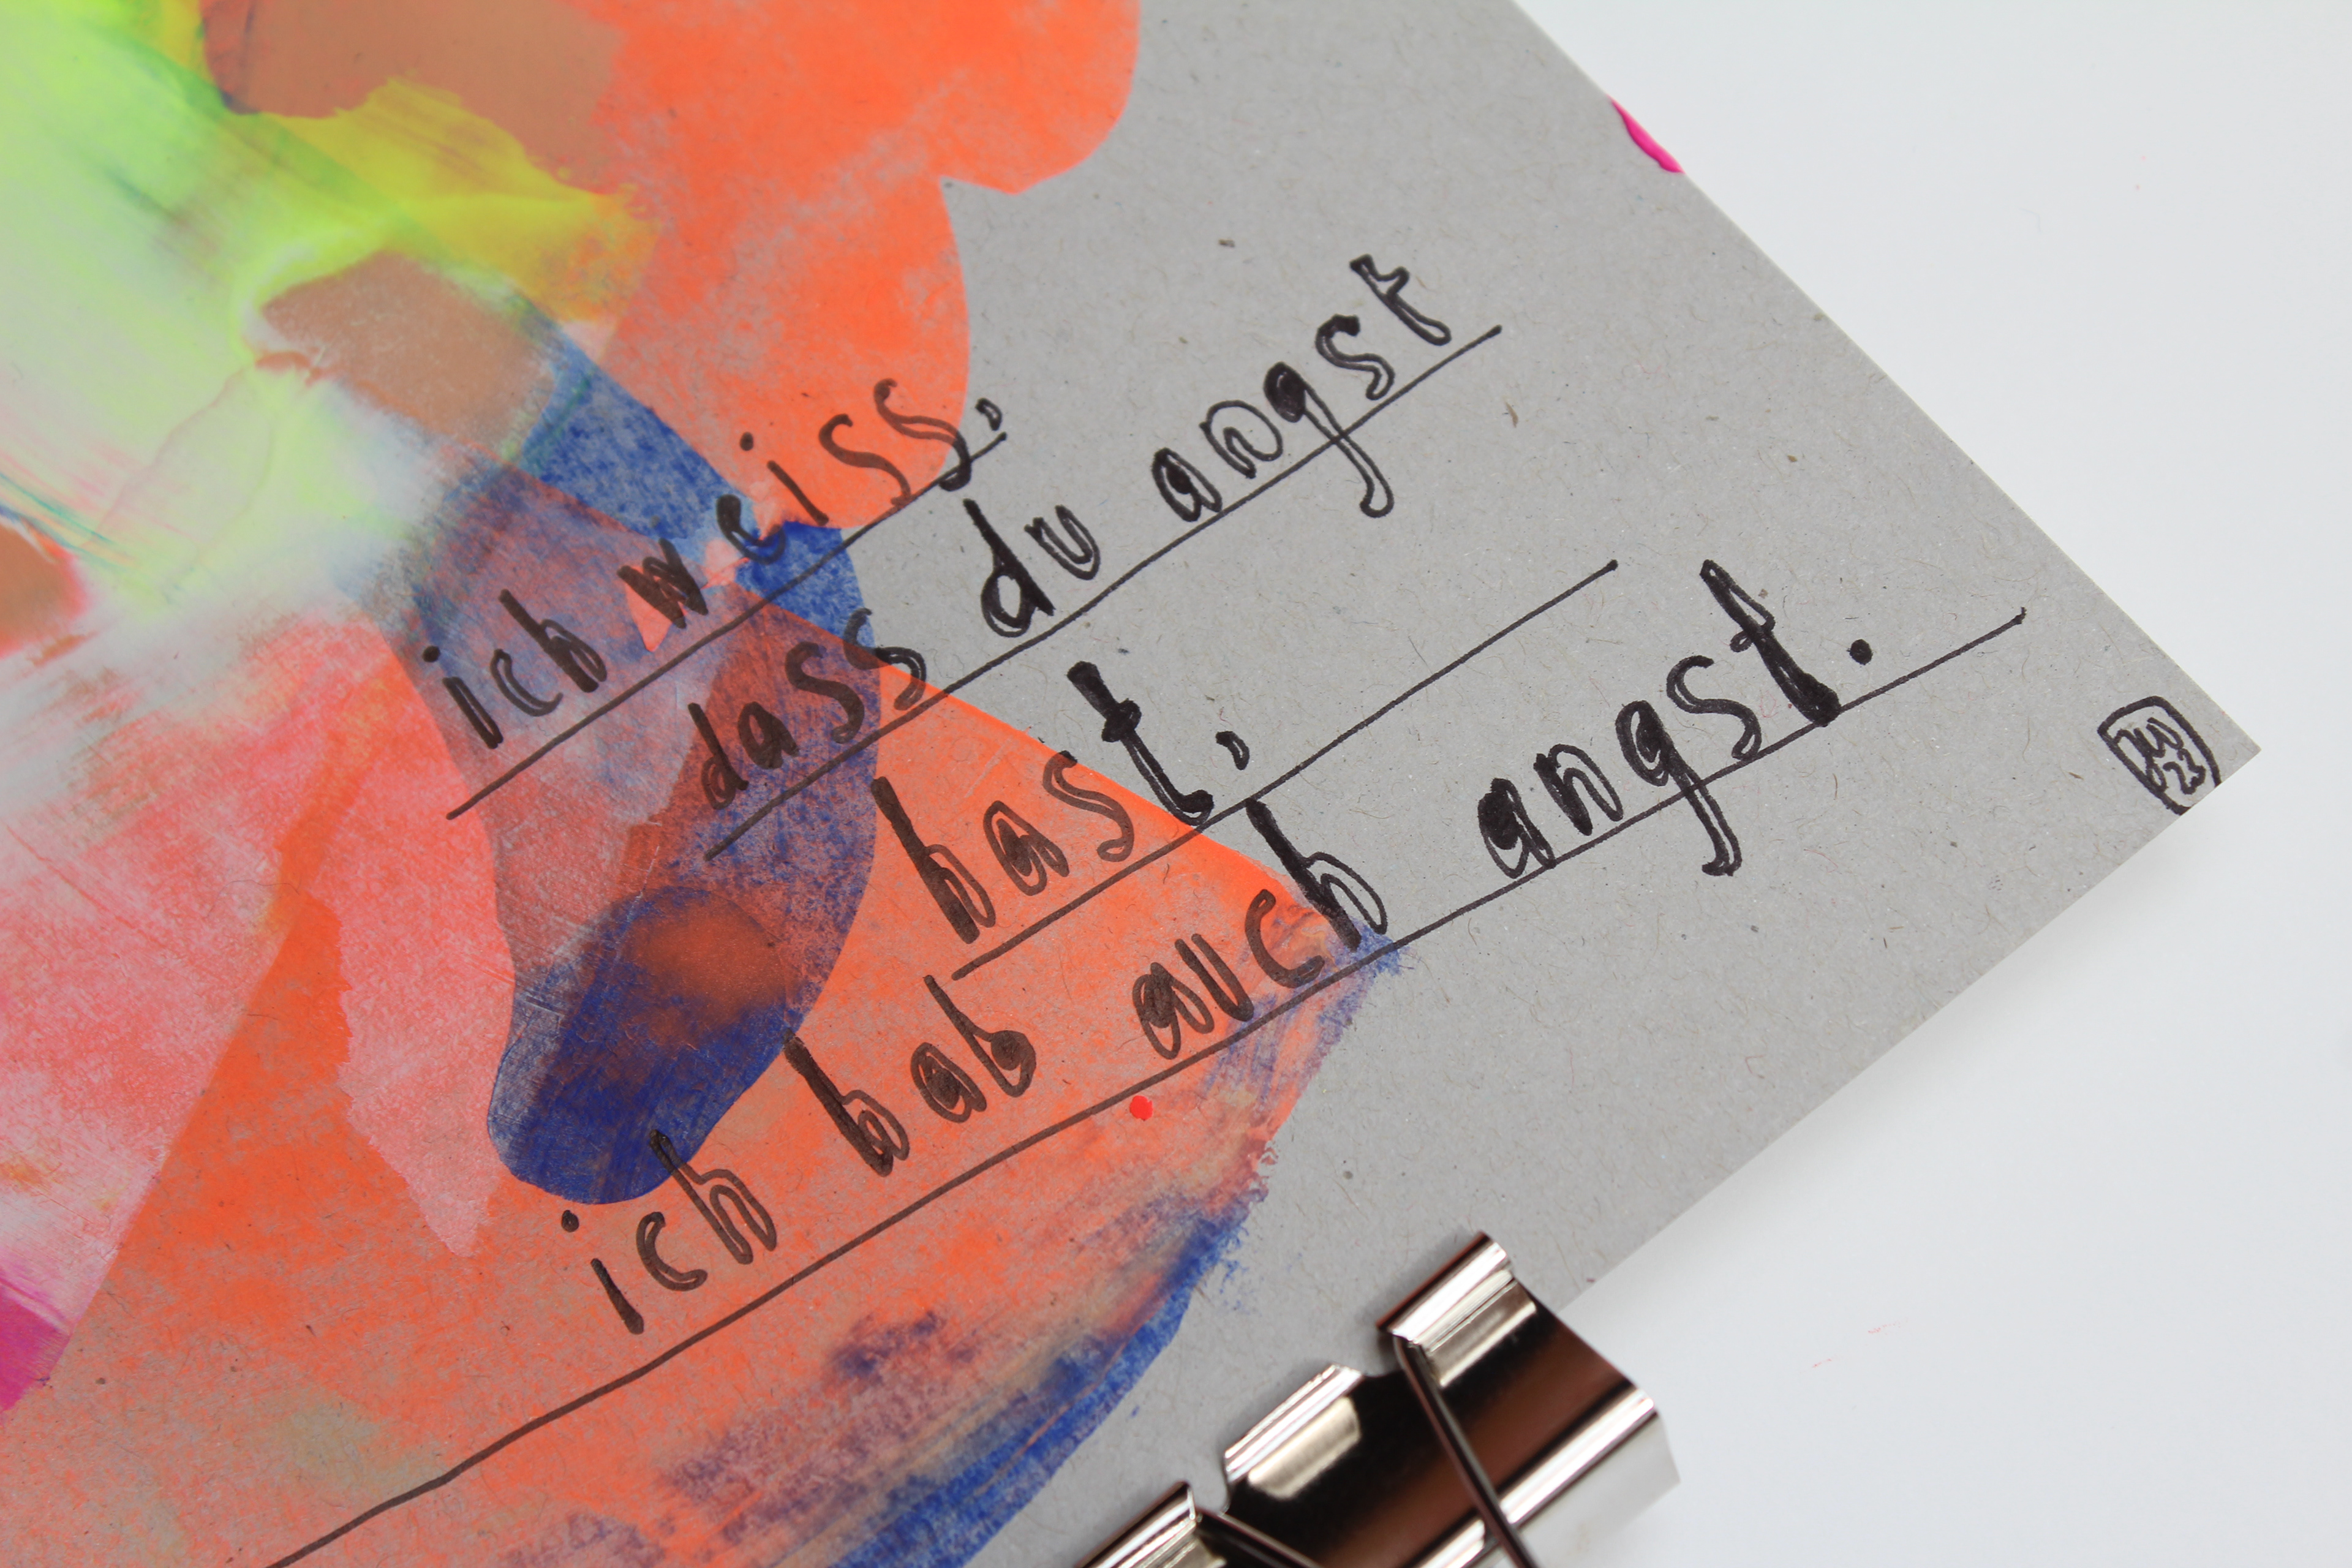 ich weiss,
dass du angst
hast,
ich hab auch angst.